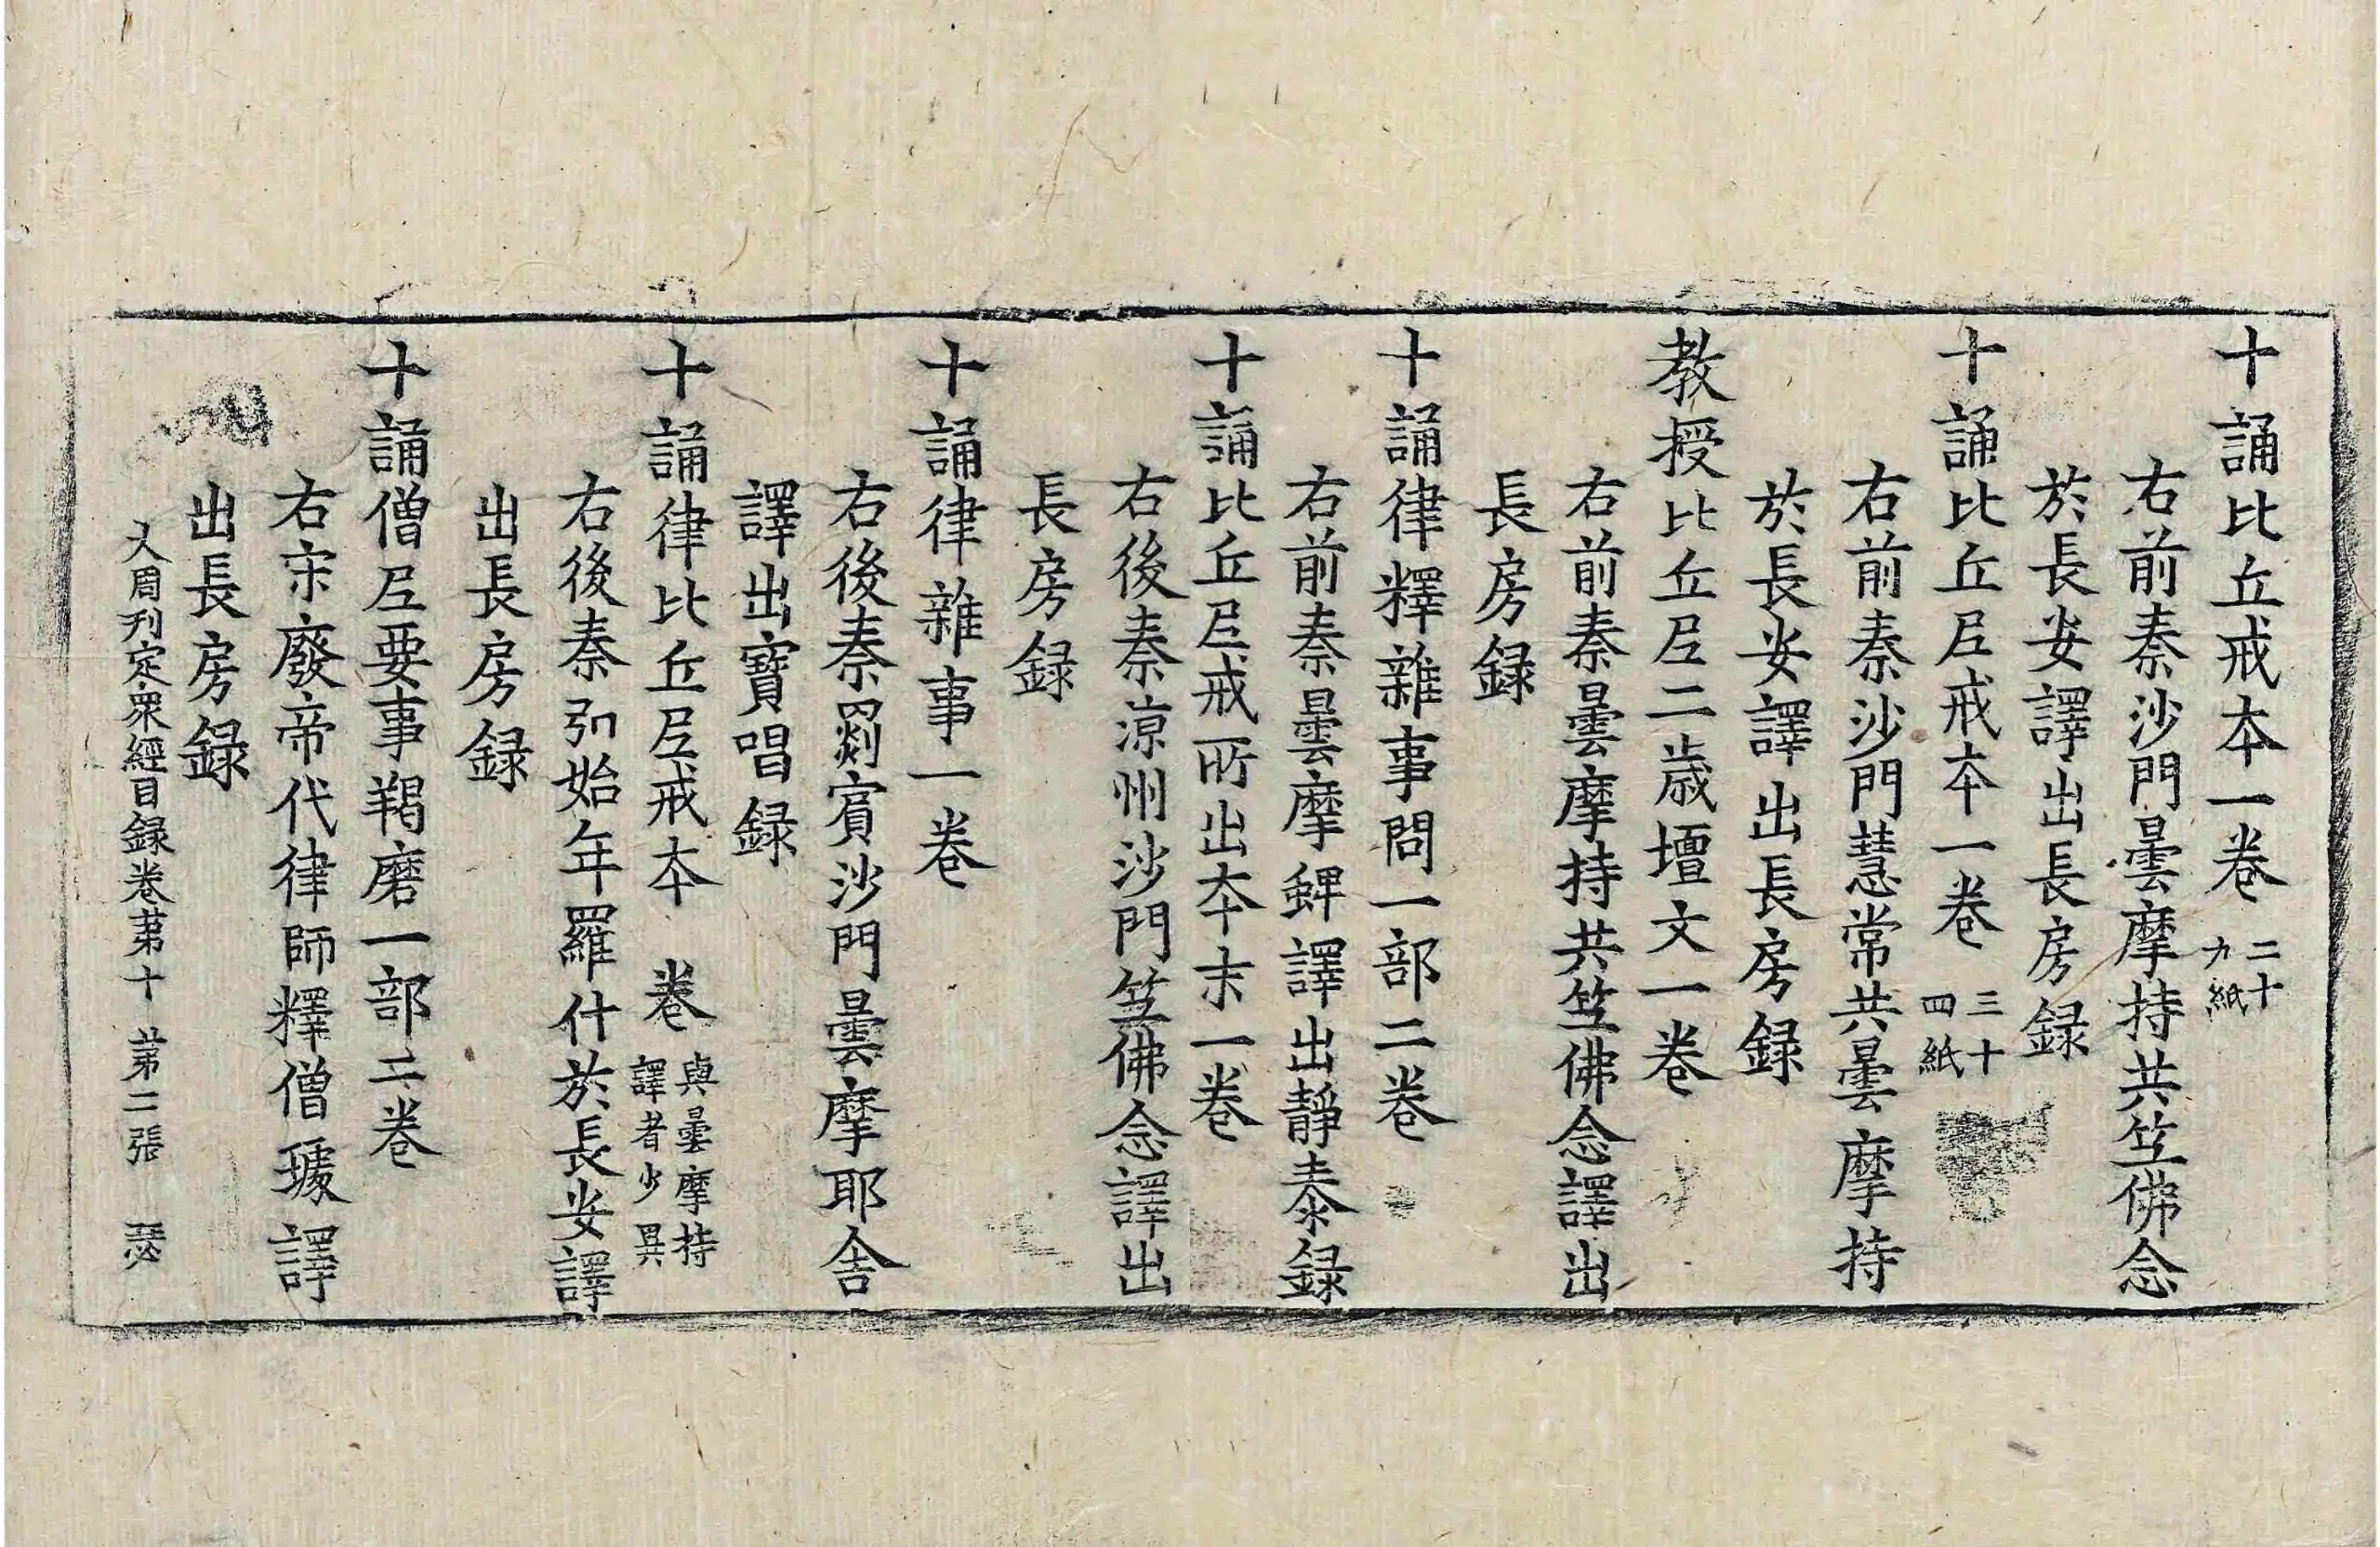 十誦比丘戒本一卷二十九紙
右前秦沙門曇摩持共竺佛念
於長安譯出長房録
十誦比丘尼戒本一卷三十四紙
右前秦沙門慧常共曇摩持
於長安譯出長房録
教授比丘尼二歳壇文一卷
右前秦曇摩持共竺佛念譯出
長房録
十誦律釋雜事問一部二卷
右前秦曇摩蜱譯出靜泰録
十誦比丘尼戒所出本末一卷
右後秦涼州沙門竺佛念譯出
長房録
十誦律雜事一卷
右後秦罽賓沙門曇摩耶舍
譯出寶唱録
十誦律比丘尼戒本 卷與曇摩持譯者少異
右後秦弘始年羅什於長安譯
出長房録
十誦僧尼要事羯磨一部二卷
右宋廢帝代律師釋僧璩譯
出長房録
大周刊定衆經目録卷第十 第二張 瑟